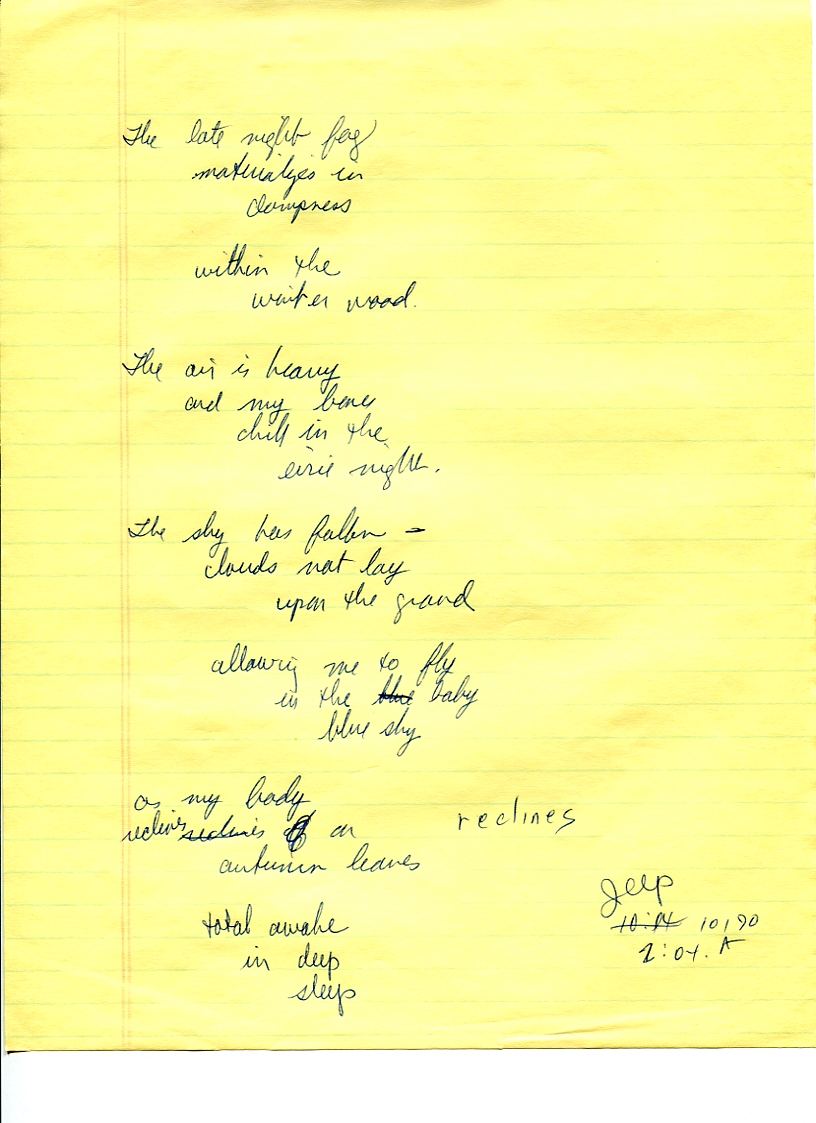 The late night fog
materializes in
dampness
within the
winter wood.
The air is heavy
and my bones
chill in the
eirie night.
The sky has fallen -
clouds not lay
upon the ground
allowing me to fly
in the blue baby
blue sky
as my body
reclines reclines on
reclines
autumn leaves
Jeep
total awake
10:04 10/90
in deep
2:04. A
sleep